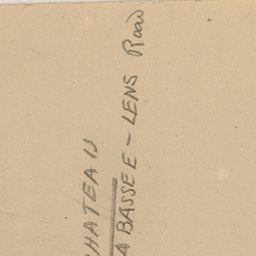 HATEAU
A BASSEE - LENS Road